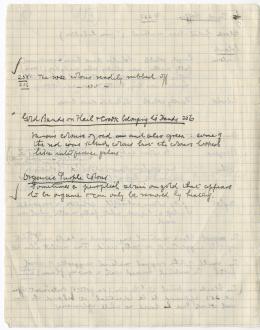 258. The rose colour readily rubbed off
Gold Bands on Flail & Crook belonging to Hands 256
Various colours of red and also green: some of
the red was slightly colour but the colours looked
like interference films
Organic Purple Colour
Sometimes a purplish stain on gold that appears
to be organic & can only be removed by heating.